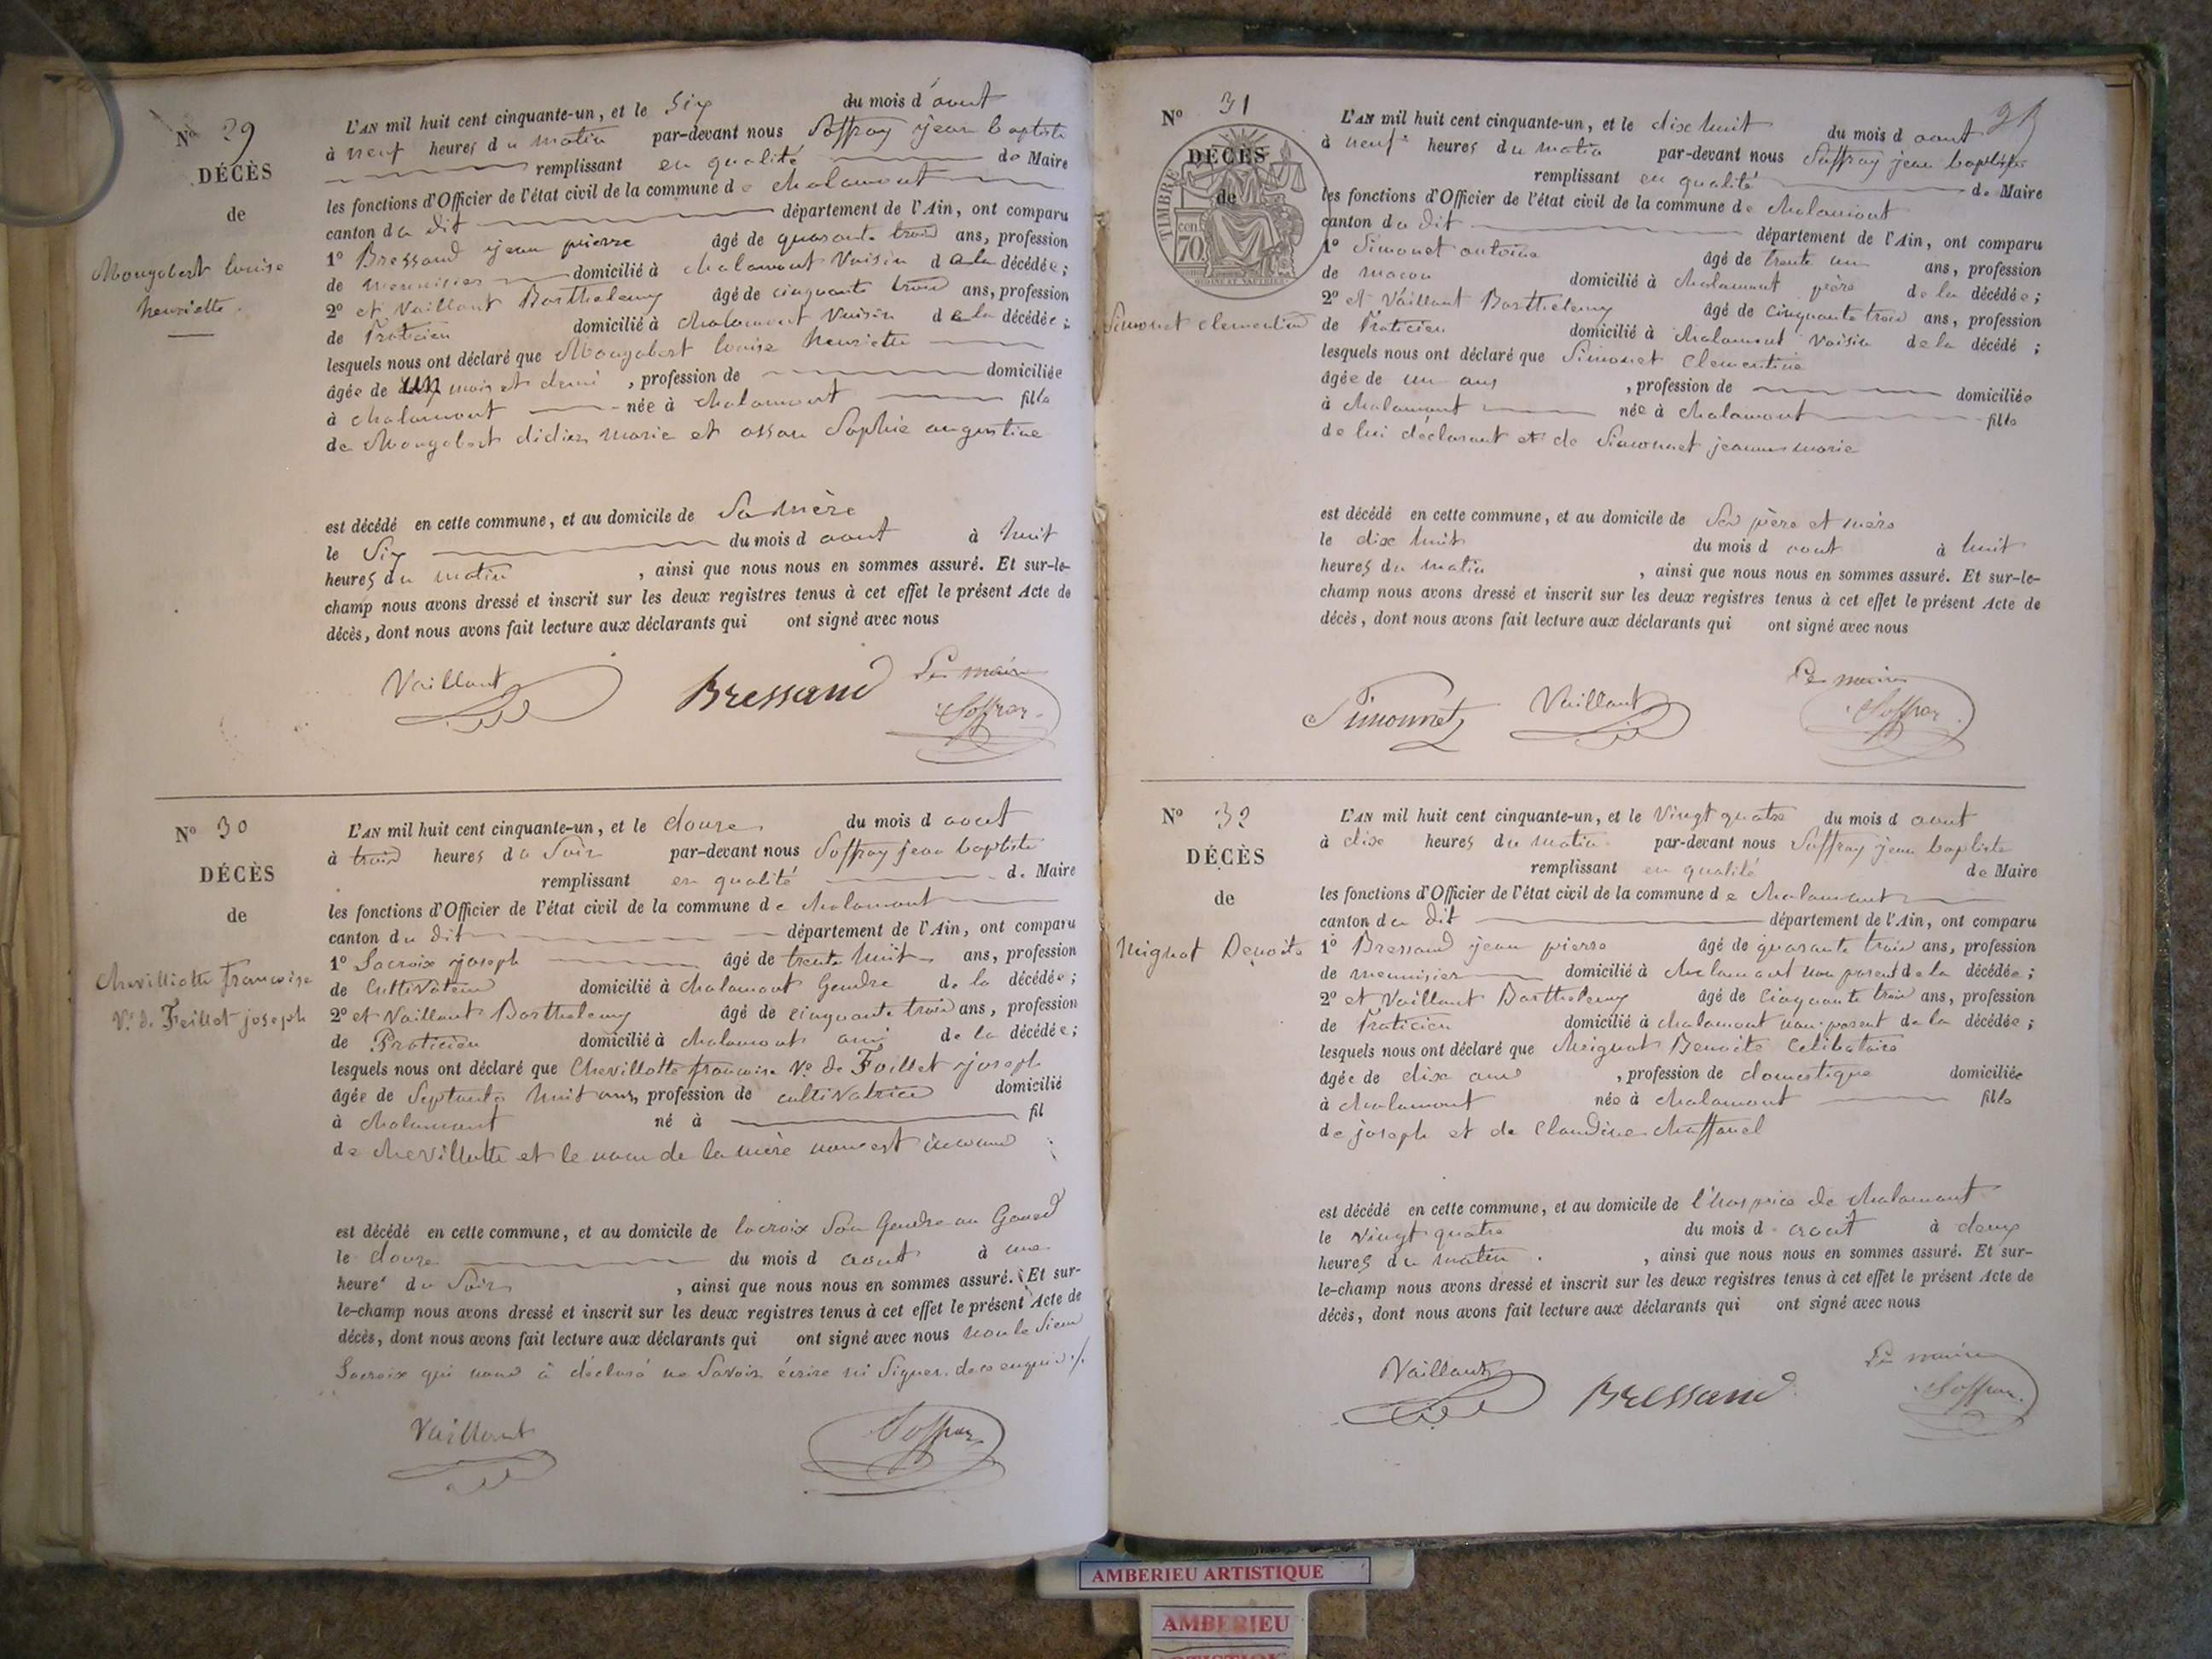 No 29
DÉCÈS
de
Mongobert louise
henriette.
L'AN mil huit cent cinquante-un, et le Six du mois d'aout
à neuf heures du matin par-devant nous Soffray jean baptiste
remplissant en qualité de Maire
les fonctions d'Officier de l'état civil de la commune de chalamont
canton du dit département de l'Ain, ont comparu
1º Bressand jean pierre âgé de quarante trois ans, profession
de menuisier domicilié à chalamont Voisin de la décédée;
2º et Vaillant Barthelemy âgé de cinquante trois ans, profession
de Praticien domicilié à chalamont Voisin de la décédée;
lesquels nous ont déclaré que Mongobert louise henriette
âgée de un mois et demi, profession de domiciliée
à chalamont née à chalamont fille
de Mongobert didier marie et Sophie augustine
est décédé en cette commune, et au domicile de Sa mère
le Six du mois d aout à huit
heures du matin, ainsi que nous nous en sommes assuré. Et sur-le-
champ nous avons dressé et inscrit sur les deux registres tenus à cet effet le présent Acte de
décès, dont nous avons fait lecture aux déclarants qui ont signé avec nous
Vaillant Bressand Le maire
Soffray
No 30
DÉCÈS
de
Chevilliotte francoise
Ve de Feillet joseph
L'AN mil huit cent cinquante-un, et le douze du mois d aout
à trois heures du Soir par-devant nous Soffray jean baptiste
remplissant en qualité de Maire
les fonctions d'Officier de l'état civil de la commune de chalamont
canton du dit département de l'Ain, ont comparu
1º Lacroix joseph âgé de trente huit ans, profession
de Cultivateur domicilié à chalamont Gendre de la décédée;
2º et Vaillant Barthelemy âgé de cinquante trois ans, profession
de Praticien domicilié à chalamont ami de la décédée;
lesquels nous ont déclaré que Chevillotte francoise Ve de Foillet joseph
âgée de Septante huit ans, profession de cultivatrice domicilié
à chalamont né à fil
de chevillotte et le nom de la mère nous est inconnu
est décédé en cette commune, et au domicile de lacroix Son Gendre au
le douze du mois d aout à une
heure du Soir, ainsi que nous nous en sommes assuré. Et sur-
le-champ nous avons dressé et inscrit sur les deux registres tenus à cet effet le présent Acte de
décès, dont nous avons fait lecture aux déclarants qui ont signé avec nous non le Sieur
Lacroix qui nous à déclaré ne Savoir écrire ni Signer. de ce enquis ./.
Vaillant Soffray
No 31
TIMBRE
cen
70
DÉCÈS
de
Simonet clementine
L'AN mil huit cent cinquante-un, et le dix huit du mois d aout
à neuf heures du matin par-devant nous Soffray jean baptiste
remplissant en qualité de Maire
les fonctions d'Officier de l'état civil de la commune de chalamont
canton du dit département de l'Ain, ont comparu
1º Simonet antoine âgé de trente un ans, profession
de macon domicilié à chalamont père de la décédée;
2º et Vaillant Barthelemy âgé de Cinquante trois ans, profession
de Praticien domicilié à chalamont Voisin de la décédé;
lesquels nous ont déclaré que Simonet Clementine
âgée de un ans, profession de domiciliée
à chalamont née à chalamont fille
de lui déclarant et de Simonnet jeanne marie
est décédé en cette commune, et au domicile de Ses père et mère
le dix huit du mois d aout à huit
heures du matin, ainsi que nous nous en sommes assuré. Et sur-le-
champ nous avons dressé et inscrit sur les deux registres tenus à cet effet le présent Acte de
décès, dont nous avons fait lecture aux déclarants qui ont signé avec nous
Simonnet Vaillant Le maire
Soffray
No 32
DÉCÈS
de
Mignot Benoite
L'AN mil huit cent cinquante-un, et le Vingt quatre du mois d aout
à dix heures du matin par-devant nous Soffray jean baptiste
remplissant en qualité de Maire
les fonctions d'Officier de l'état civil de la commune de chalamont
canton du dit département de l'Ain, ont comparu
1º Bressand jean pierre âgé de quarante trois ans, profession
de menuisier domicilié à chalamont non parent de la décédée;
2º et Vaillant Barthelemy âgé de Cinquante trois ans, profession
de Praticien domicilié à chalamont non parent de la décédée;
lesquels nous ont déclaré que Meignot Benoite Celibataire
âgée de dix ans, profession de domestique domiciliée
à chalamont née à chalamont fille
de joseph et de Claudine chaffanel
est décédé en cette commune, et au domicile de l'hospice de chalamont
le Vingt quatre du mois d aout à deux
heures du matin, ainsi que nous nous en sommes assuré. Et sur-
le-champ nous avons dressé et inscrit sur les deux registres tenus à cet effet le présent Acte de
décès, dont nous avons fait lecture aux déclarants qui ont signé avec nous
Vaillant Bressand Le maire
Soffray
AMBERIEU ARTISTIQUE
AMBERIEU
ARTISTIQUE